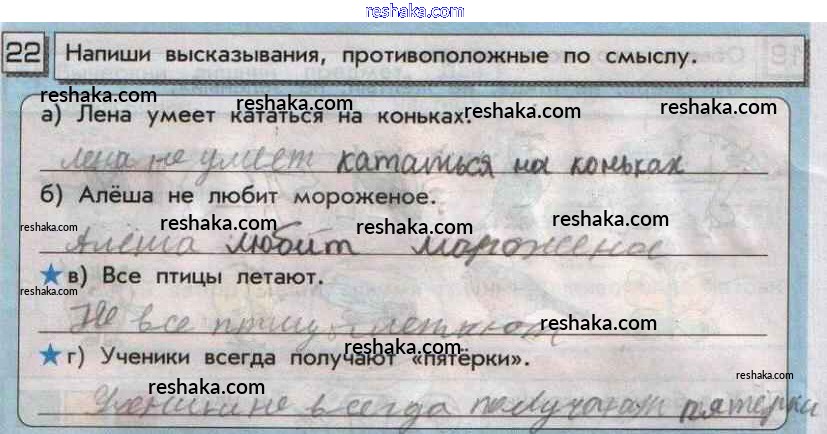 reshaka.com
22 Напиши высказывания, противоположные по смыслу.
reshaka.com reshaka.com reshaka.com reshaka.com
а) Лена умеет кататься на коньках.
лена не умеет кататься на коньках
б) Алёша не любит мороженое.
reshaka.com reshaka.com reshaka.com reshaka.com
Алёша любит мороженое
в) Все птицы летают.
reshaka.com
Не все птицы летают
reshaka.com
г) Ученики всегда получают «пятёрки».
reshaka.com reshaka.com
Ученики не всегда получают пятёрки